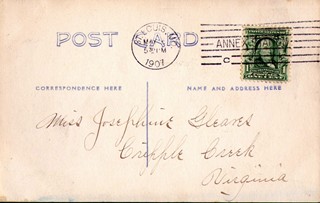 POST CARD
ST. LOUIS, MO.
1907
ANNEX
C
CORRESPONDENCE HERE
NAME AND ADDRESS HERE
Miss Josephine Gleaves
Cripple Creek
Virginia